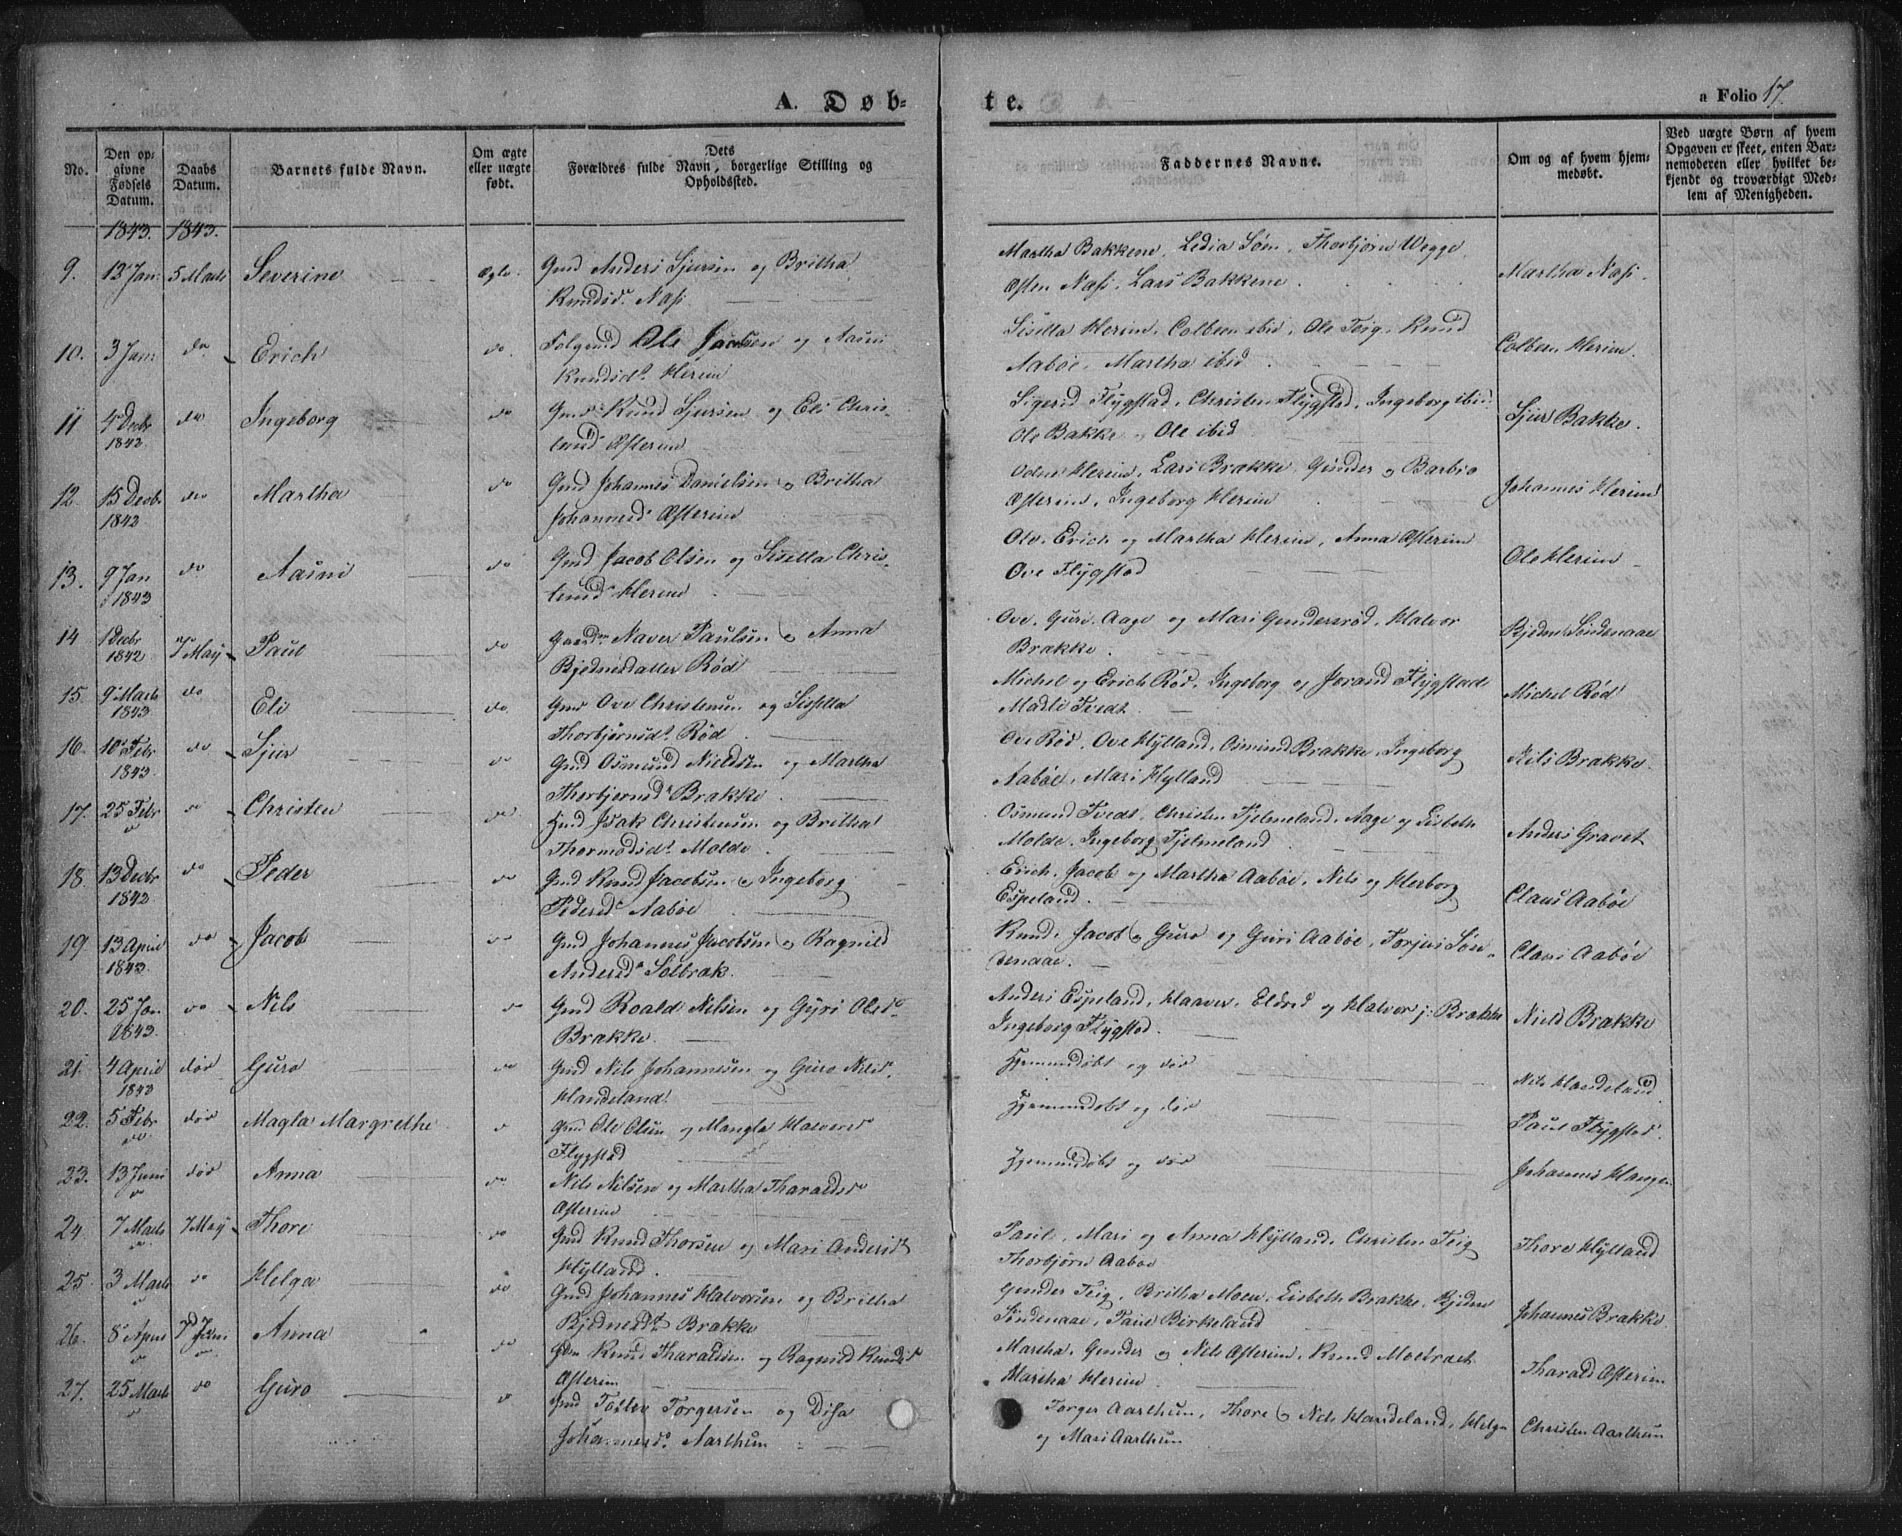 A. Døb-
te.
a Folio 17.
No.
Den op-
givne
Fødsels
Datum.
Daabs
Datum.
Barnets fulde Navn.
Om ægte
eller uægte
født.
Dets
Forældres fulde Navn, borgerlige Stilling og
Opholdssted.
Faddernes Navne.
Om og af hvem hjem-
medøbt.
Ved uægte Børn af hvem
Opgaven er skeet, enten Bar-
nemoderen eller hvilket be-
kjendt og troværdigt Med-
lem af Menigheden.
1843. 1843.
9. 13 Jan: 5 Marts Severine Ægte. Gmd Anders Sjursen og Britha
Knudsd. Næss
Martha Bakkene, Ledia Søm, Thorbjørn Wegge
Østen Næss. Lars Bakkene
Martha Næss.
10. 3 Jan: do Erich do. Ole Jacobsen og Aasni
Knudsdr. Herim
Sisella Herim, Colbeen ibid, Ole Teig, Knud
Aabøe, Martha ibid
Colbeen Herim.
11 4 Decbr 1842 do Ingeborg do Gmd Knud Sjursen og Eli Chris-
tensd Østerim
Sigerid Flygstad, Christen Flygstad, Ingeborg ibid
Ole Bakke og Ole ibid
Sjur Bakke.
12. 15 Decbr 1842 do Martha do Gmd Johannes Danielsen og Britha
Johannesd Østerim
Oden Herim, Lars Brække, Gunder og Barbro
Østerim, Ingeborg Herim
Johannes Herim
13. 9 Jan 1843 do Aasni do Gmd Jacob Olsen og Sisella Chris-
tensd Herim
Ole, Erich og Martha Herim, Anna Østerim
Ove Flygstad
Ole Herim
14 1 Decbr 1842 7 May Paul do Naver Paulsen og Anna
Bjednesdatter Rød
Ove, Guri, Aage og Mari Gundersrød, Halvor
Brække.
Bjeden Søndenaae
15. 9 Marts 1843 do Eli do. Gmd Ove Christensen og Sissella
Thorbjørnsdr. Rød
Michel og Erich Rød, Ingeborg og Jorand Flygstad
Madli Tvedt.
Michel Rød
16. 10 Febr 1843. do Sjur do Gmd Osmund Nielsen og Martha
Thorbjørnsd Brække
Ove Rød, Ove Hylland, Osmund Brække, Ingeborg
Aabøe, Mari Hylland
Nils Brække.
17. 25 Febr do Christen do Gmd Isak Christensen og Britha
Thormodsdr. Molde
Osmund Tvedt, Christen Fjelmeland, Aage og Lisbeth
Molde, Ingeborg Fjelmeland
Anders Gravet
18. 13 Decbr 1842 do Peder do Gmd Knud Jacobsen og Ingeborg
Pedersd. Aabøe
Erich, Jacob og Martha Aabøe, Nils og Herborg
Espeland.
Claus Aabøe
19. 13 April 1843. do Jacob do Gmd Johannes Jacobsen og Ragnild
Andersd. Solbrak.
Knud, Jacob, Guro og Guri Aabøe, Torjuss Søn-
denaae.
Claus Aabøe
20. 25 Jan 1843. do Nils do Gmd Roald Nilsen og Gyri Olsd.
Brække
Anders Espeland, Haaver, Eldrid og Halvor j: Brække
Ingeborg Flygstad.
Niels Brække
21. 4 April 1843 død Guro do Gmd Nils Johannesen og Guro Nilsd.
Handeland.
Hjemmedøbt og død
Nils Handeland.
22. 5 Febr do død Magla Margrethe do Gmd Ole Olsen og Mangla Halvorsd
Flygstad
Hjemmedøbt og død
Paul Flygstad.
23. 13 Juni do død Anna do Nils Nilsen og Martha Tharaldsd
Østerim
Hjemmedøbt og død
Johannes
24. 7 Marts do 7 May Thore do Gmd Knud Thorsen og Mari Andersd
Hylland.
Paul, Mari og Anna Hylland, Christen Teig
Thorbjørn Aabøe
Thore Hylland
25. 3 Marts do do Helga do Gmd Johannes Halvorsen og Britha
Bjednesdr. Brække
Gunder Teig, Britha Moen, Lisbeth Brække, Bjeden
Søndenaae, Paul Birkeland
Johannes Brække.
26. 8 April do Juni Anna do Gdm Knud Tharaldsen og Ragnild Knudsd
Østerim
Martha, Gunder og Nils Østerim, Knud Molbræt
Martha Herim
Tharald Østerim
27. 25 Marts do Guro do Gmd Tollev Torgersen og Disa
Johannesd. Aarthun
Torger Aarthun, Thore og Nils Handeland, Helga
og Mari Aarthun
Christen Aarthun